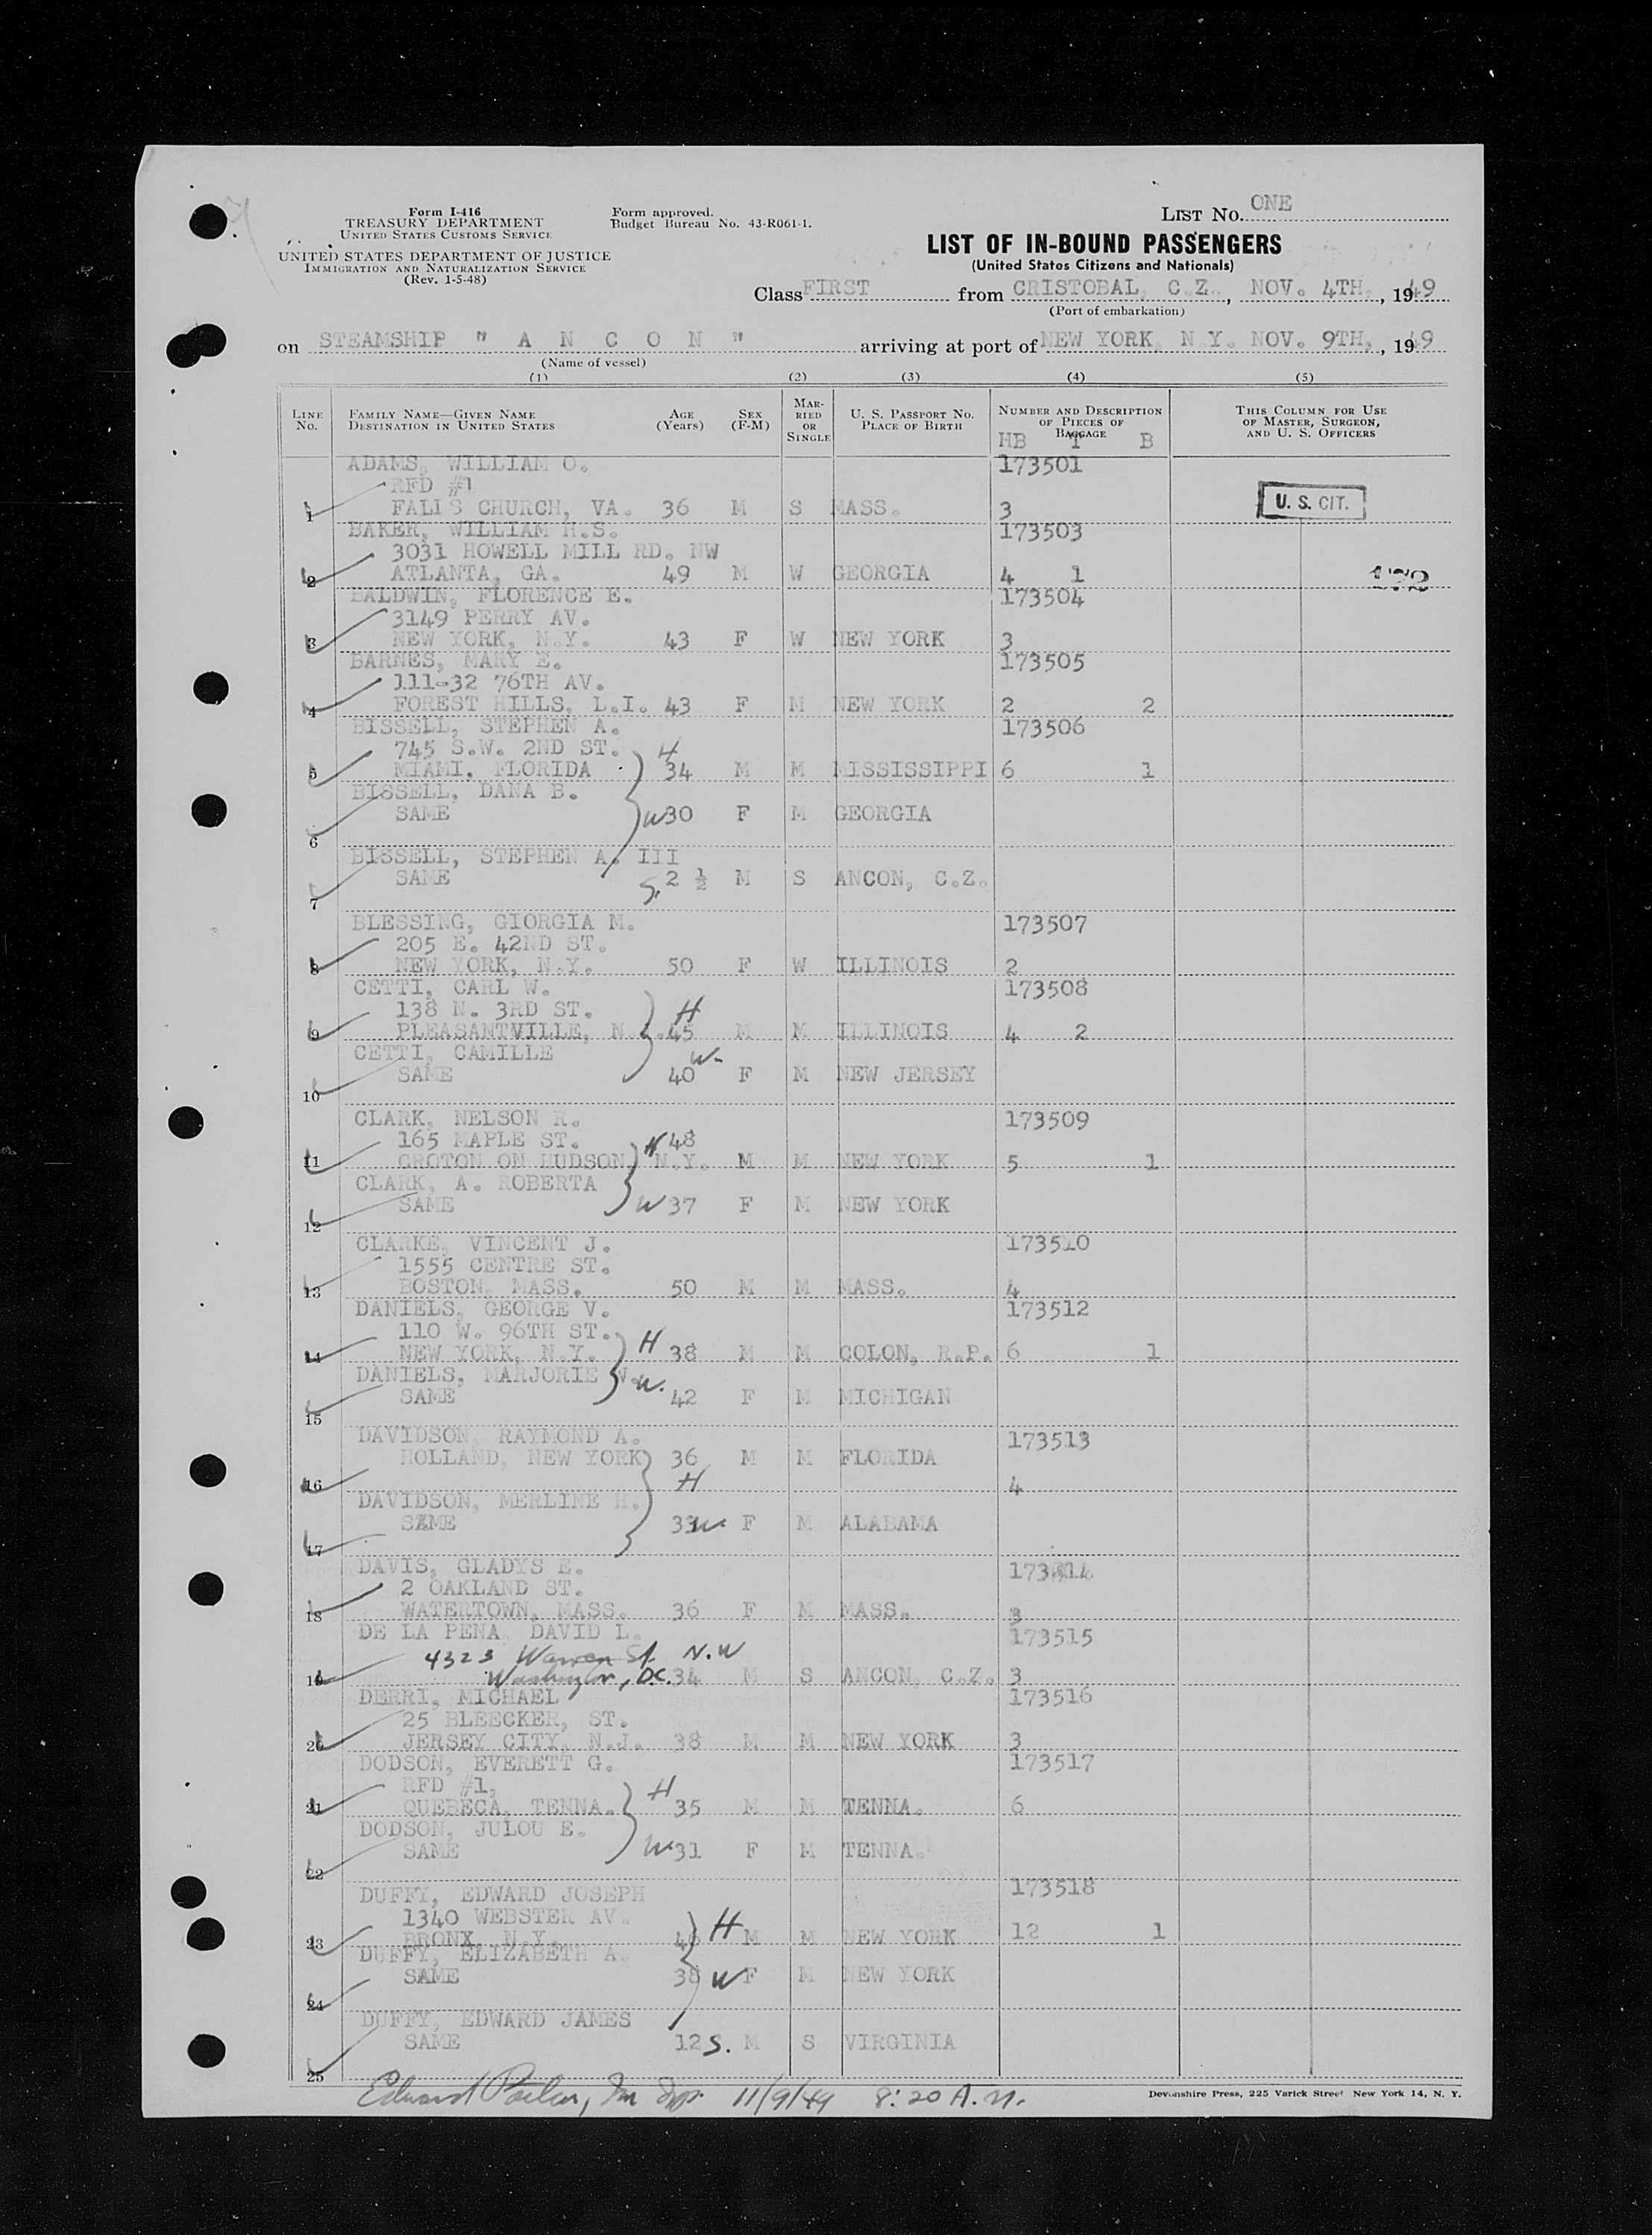 Form I-416
TREASURY DEPARTMENT
UNITED STATES CUSTOMS SERVICE
UNITED STATES DEPARTMENT OF JUSTICE
IMMIGRATION AND NATURALIZATION SERVICE
(Rev. 1-5-48)
Form approved.
Budget Bureau No. 43-R061-1.
LIST NO. ONE
LIST OF IN-BOUND PASSENGERS
(United States Citizens and Nationals)
Class FIRST from CRISTOBAL, C.Z., NOV. 4TH, 1949
(Port of embarkation)
on STEAMSHIP " A N C O N " arriving at port of NEW YORK, N.Y. NOV. 9TH, 1949
(Name of vessel)
(1) (2) (3) (4) (5)
LINE NO. FAMILY NAME—GIVEN NAME DESTINATION IN UNITED STATES AGE (Years) SEX (F-M) MARRIED OR SINGLE U. S. PASSPORT NO. PLACE OF BIRTH NUMBER AND DESCRIPTION OF PIECES OF BAGGAGE THIS COLUMN FOR USE OF MASTER, SURGEON, AND U. S. OFFICERS
HB T B
ADAMS, WILLIAM O. 173501
RFD #1
1 FALLS CHURCH, VA. 36 M S MASS. 3 U. S. CIT.
BAKER, WILLIAM H.S. 173503
3031 HOWELL MILL RD. NW
2 ATLANTA, GA. 49 M W GEORGIA 4 1
BALDWIN, FLORENCE E. 173504
3149 PERRY AV.
3 NEW YORK, N.Y. 43 F W NEW YORK 3
BARNES, MARY E. 173505
111-32 76TH AV.
4 FOREST HILLS, L.I. 43 F M NEW YORK 2 2
BISSELL, STEPHEN A. 173506
745 S.W. 2ND ST. H
5 MIAMI, FLORIDA 34 M M MISSISSIPPI 6 1
BISSELL, DANA B.
SAME W 30 F M GEORGIA
6
BISSELL, STEPHEN A. III
SAME S. 2 ½ M S ANCON, C.Z.
7
BLESSING, GIORGIA M. 173507
205 E. 42ND ST.
8 NEW YORK, N.Y. 50 F W ILLINOIS 2
CETTI, CARL W. 173508
138 N. 3RD ST. H
9 PLEASANTVILLE, N.J. 45 M M ILLINOIS 4 2
CETTI, CAMILLE W-
SAME 40 F M NEW JERSEY
10
CLARK, NELSON R. 173509
165 MAPLE ST. H 48
11 CROTON ON HUDSON, N.Y. M M NEW YORK 5 1
CLARK, A. ROBERTA
SAME W 37 F M NEW YORK
12
CLARKE, VINCENT J. 173510
1555 CENTRE ST.
13 BOSTON, MASS. 50 M M MASS. 4
DANIELS, GEORGE V. 173512
110 W. 96TH ST. H
14 NEW YORK, N.Y. 38 M M COLON, R.P. 6 1
DANIELS, MARJORIE W. W.
SAME 42 F M MICHIGAN
15
DAVIDSON, RAYMOND A. 173513
HOLLAND, NEW YORK 36 M M FLORIDA
16 H 4
DAVIDSON, MERLINE H.
SAME 33 W F M ALABAMA
17
DAVIS, GLADYS E.
2 OAKLAND ST.
18 WATERTOWN, MASS. 36 F M MASS. 3
DE LA PENA, DAVID L. 173515
4323 Warren St. N.W
19 Washington, D.C. 34 M S ANCON, C.Z. 3
DERRI, MICHAEL 173516
25 BLEECKER, ST.
20 JERSEY CITY, N.J. 38 M M NEW YORK 3
DODSON, EVERETT G. 173517
RFD #1, H
21 QUEBECA, TENNA. 35 M M TENNA. 6
DODSON, JULOU E.
SAME W 31 F M TENNA.
22
DUFFY, EDWARD JOSEPH 173518
1340 WEBSTER AV. H
23 BRONX, N.Y. M M NEW YORK 12 1
DUFFY, ELIZABETH A.
SAME 38 W F M NEW YORK
24
DUFFY, EDWARD JAMES
SAME 12 S. M S VIRGINIA
25
Edward 11/9/49 8:20 A.M.
Devonshire Press, 225 Varick Street New York 14, N. Y.